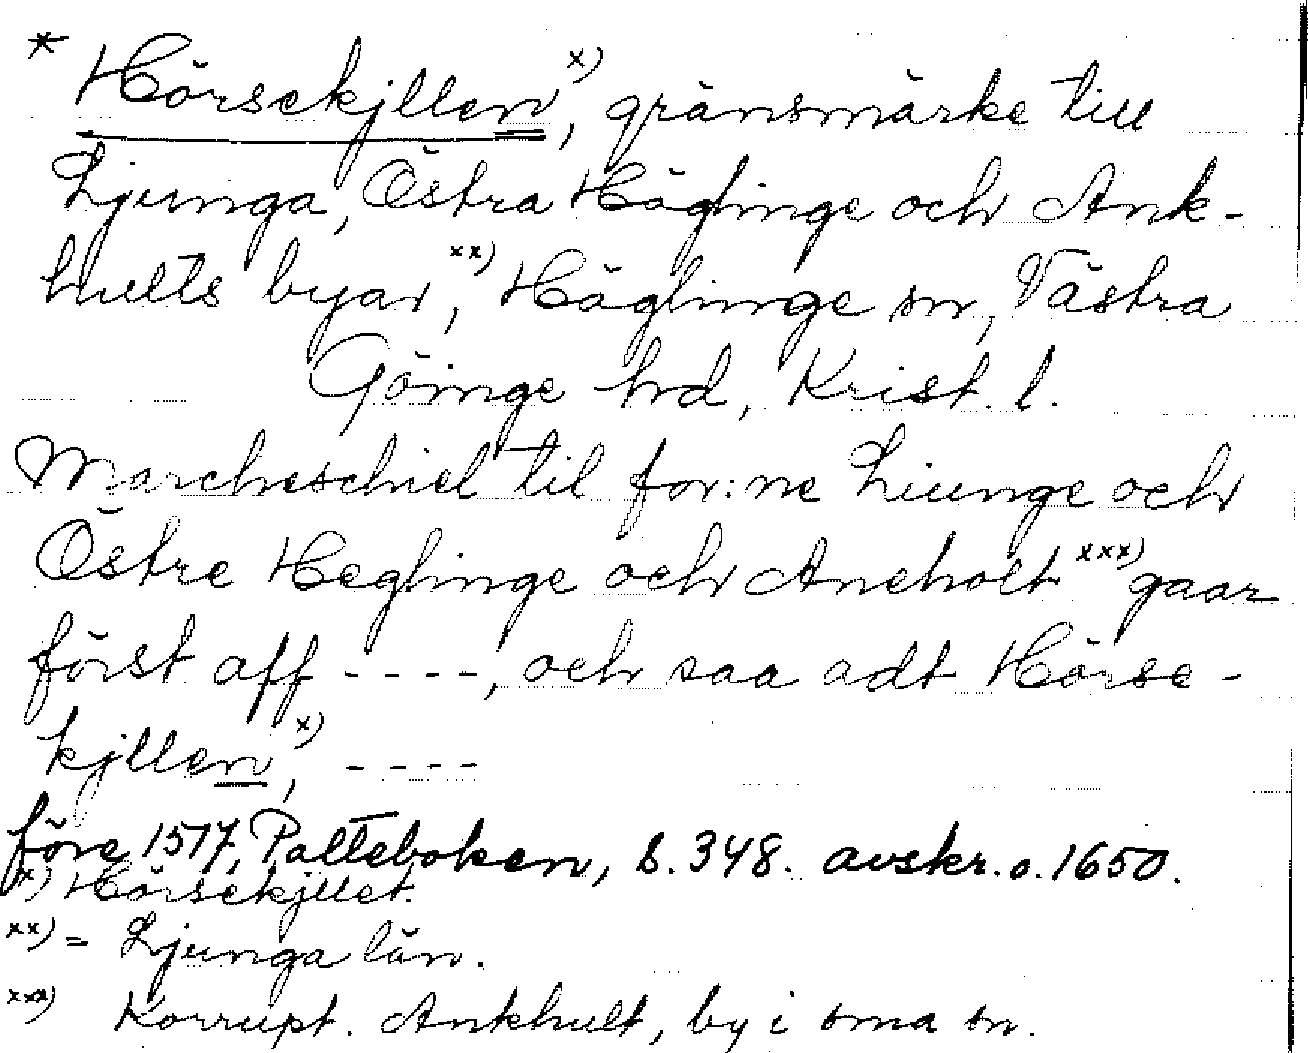 * Hörsekjllen x), gränsmärke till
Ljunga, Östra Häglinge och Ank-
hults byar, xx) Häglinge sn, Västra
Göinge hd, Krist. l.
Marcheschiel til for:ne Liunge och
Östre Heglinge och Aneholt xxx) gaar
först aff ----, och saa adt Hörse-
kjllen, x) ----
före 1517, Palteboken, s. 348. avskr. o. 1650.
x) Hörsekjllet.
xx) = Ljunga län.
xxx) Korrupt. Ankhult, by i sma sn.